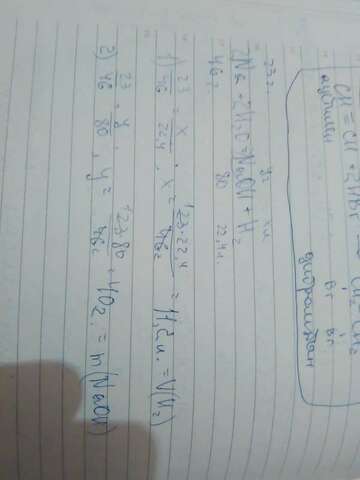 CH ≡ CH + 2HBr → CH₂-CH₂
ацетилен Br Br
дибромэтан
23г. yг xл
2Na + 2H₂O = 2NaOH + H₂
46г. 80 22,4л.
1) 23/46 = x/22,4 ; x = 23·22,4/46г = 11,2л. = V(H₂)
2) 23/46 = y/80 ; y = 23·80/46г = 40г. = m(NaOH)